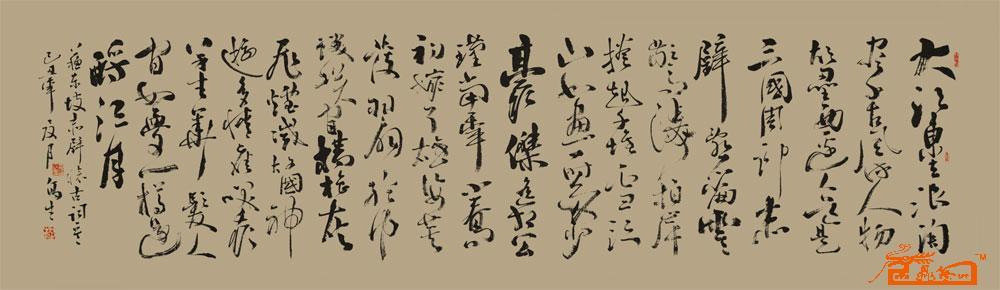 大江東去浪淘
盡千古風流人物
故壘西邊人道是
三國周郎赤
壁亂石崩雲
驚濤拍岸
捲起千堆雪江
山如畫一時多少
豪傑遙想公
瑾當年小喬
初嫁了雄姿英
發羽扇綸巾
談笑間檣櫓灰
飛煙滅故國神
遊多情應笑我
早生華髮人
間如夢一樽還
酹江月
蘇東坡赤壁懷古詞
己丑年夏月